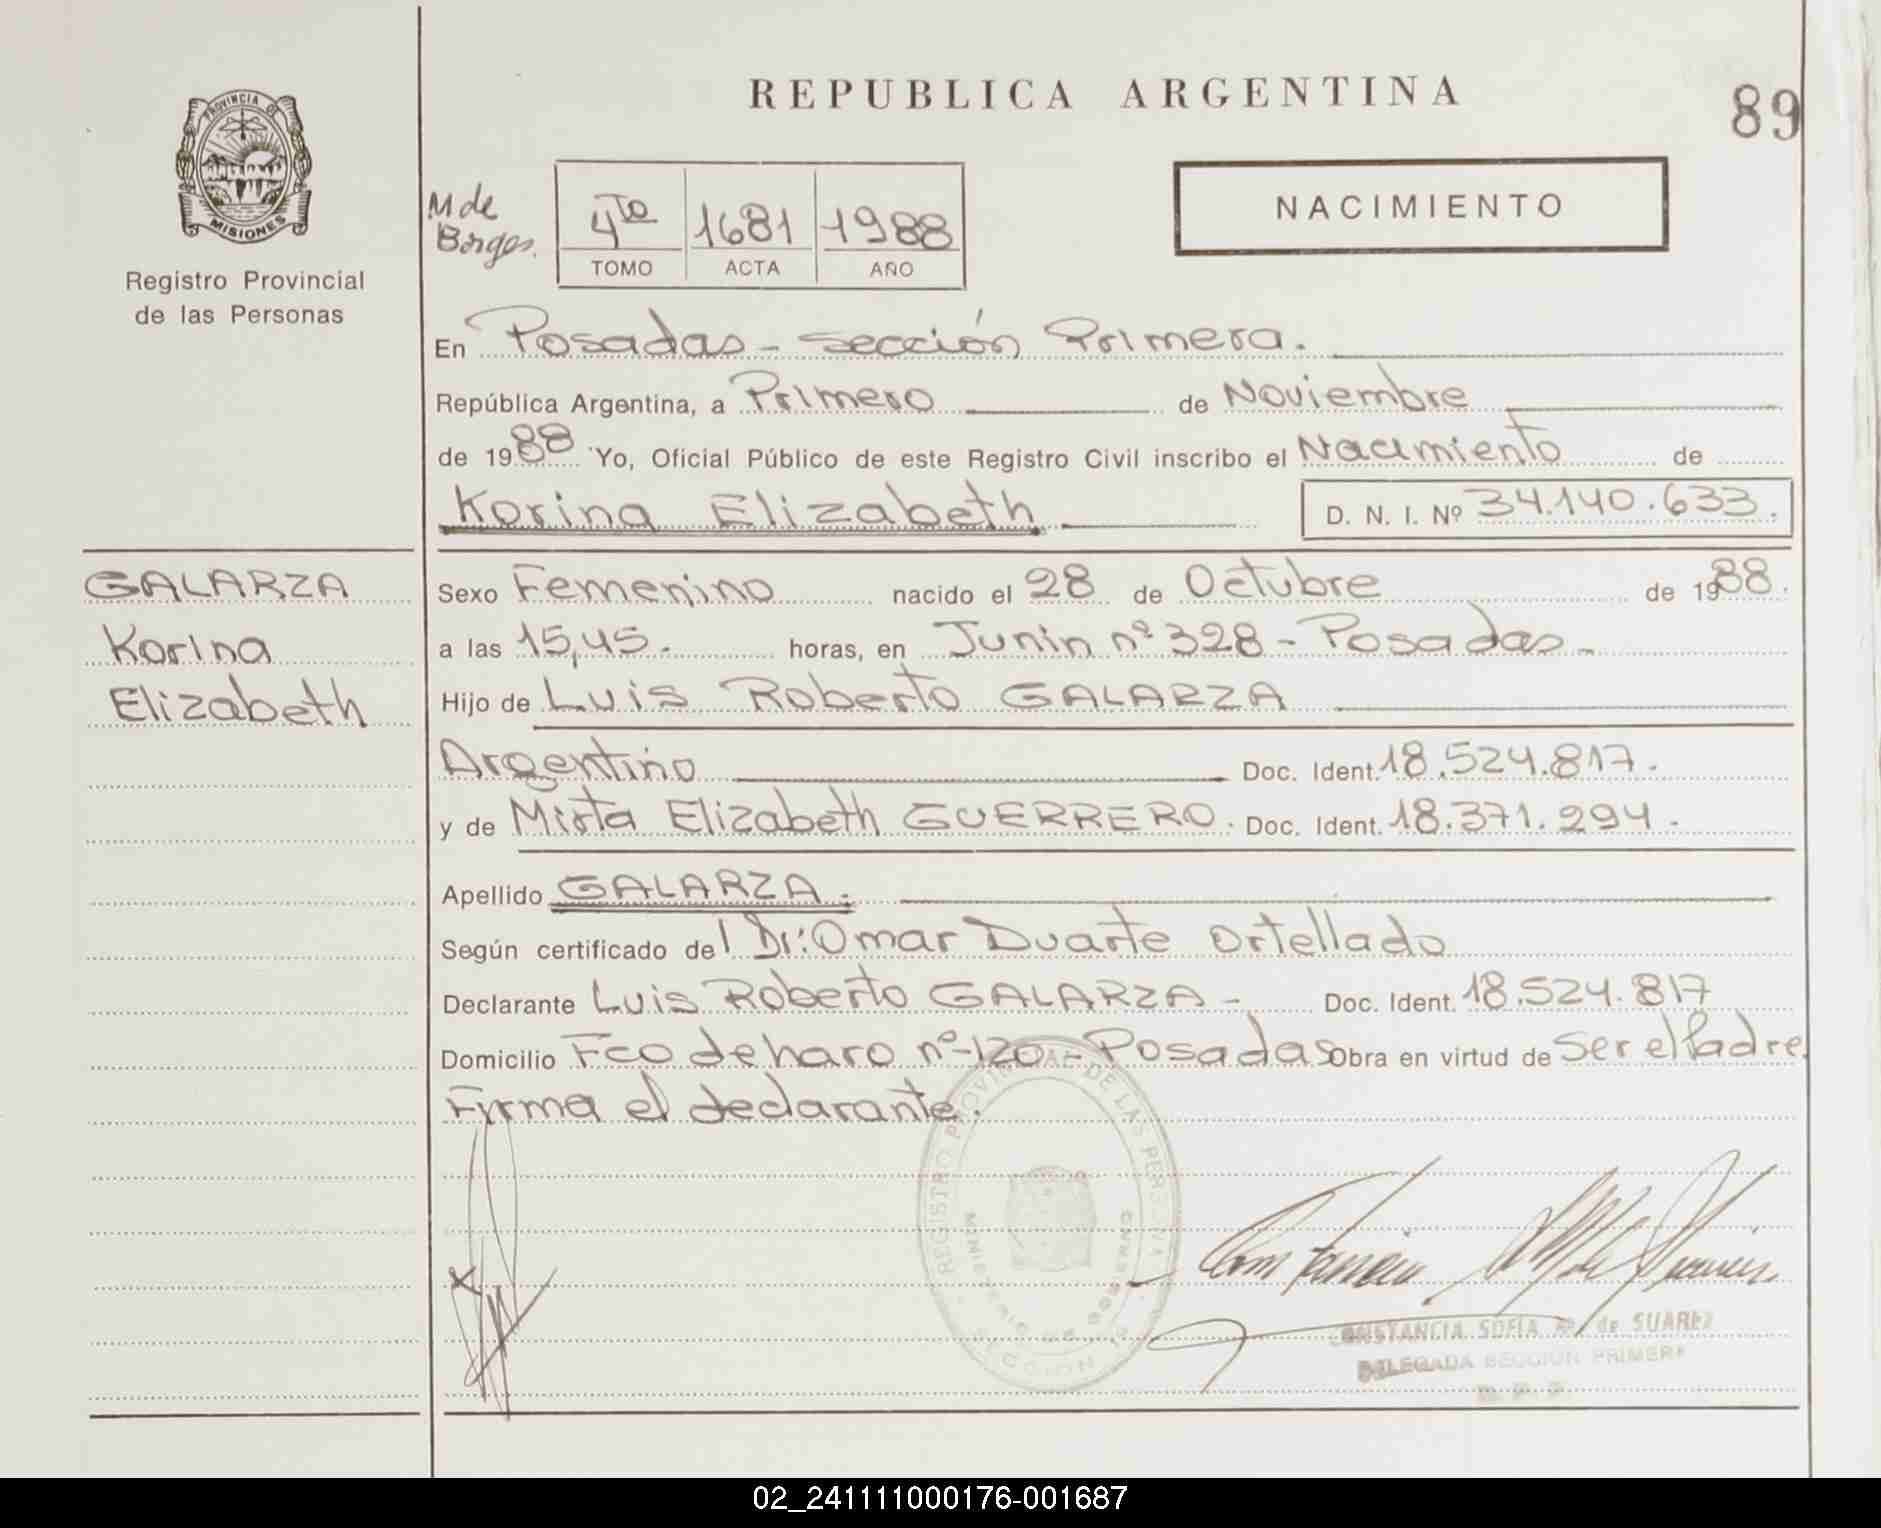 REPUBLICA ARGENTINA
89
PROVINCIA DE
MISIONES
Registro Provincial
de las Personas
M de
Borges.
4to 1681 1988
TOMO ACTA AÑO
NACIMIENTO
En Posadas - Sección Primera.
República Argentina, a Primero de Noviembre
de 1988 Yo, Oficial Público de este Registro Civil inscribo el Nacimiento de
Korina Elizabeth D. N. I. Nº 34.140.633.
GALARZA
Korina
Elizabeth
Sexo Femenino nacido el 28 de Octubre de 1988.
a las 15,45. horas, en Junin nº 328 - Posadas -
Hijo de Luis Roberto GALARZA
Argentino Doc. Ident. 18.524.817.
y de Mirta Elizabeth GUERRERO. Doc. Ident. 18.371.294.
Apellido GALARZA.
Según certificado del Dr: Omar Duarte Ortellado
Declarante Luis Roberto GALARZA - Doc. Ident. 18.524.817
Domicilio Fco de haro nº 120 - Posadas Obra en virtud de Ser el Padre.
Firma el declarante.
REGISTRO PROVINCIAL DE LAS PERSONAS
MINISTERIO DE GOBIERNO
SECCION 1a
CONSTANCIA SOFIA de SUAREZ
DELEGADA SECCION PRIMERA
R. P. P.
02_241111000176-001687